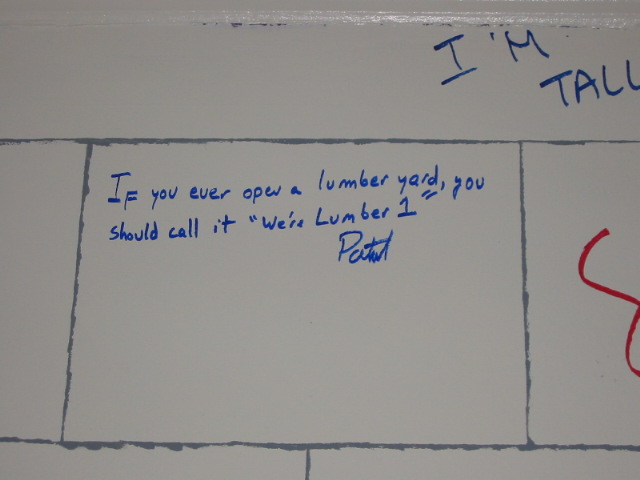 I'M
TALL
If you ever open a lumber yard, you
should call it "We're Lumber 1"